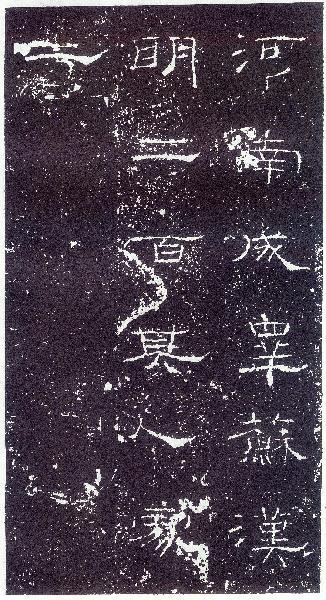 河南成皋蘇漢
明二百其人處
士